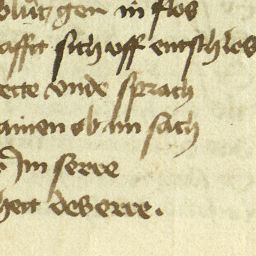 blůt gen in flos
afft sich uff entschlos
ecte vnde sprach
ainen ob im sach
Im serre
heit des erre.